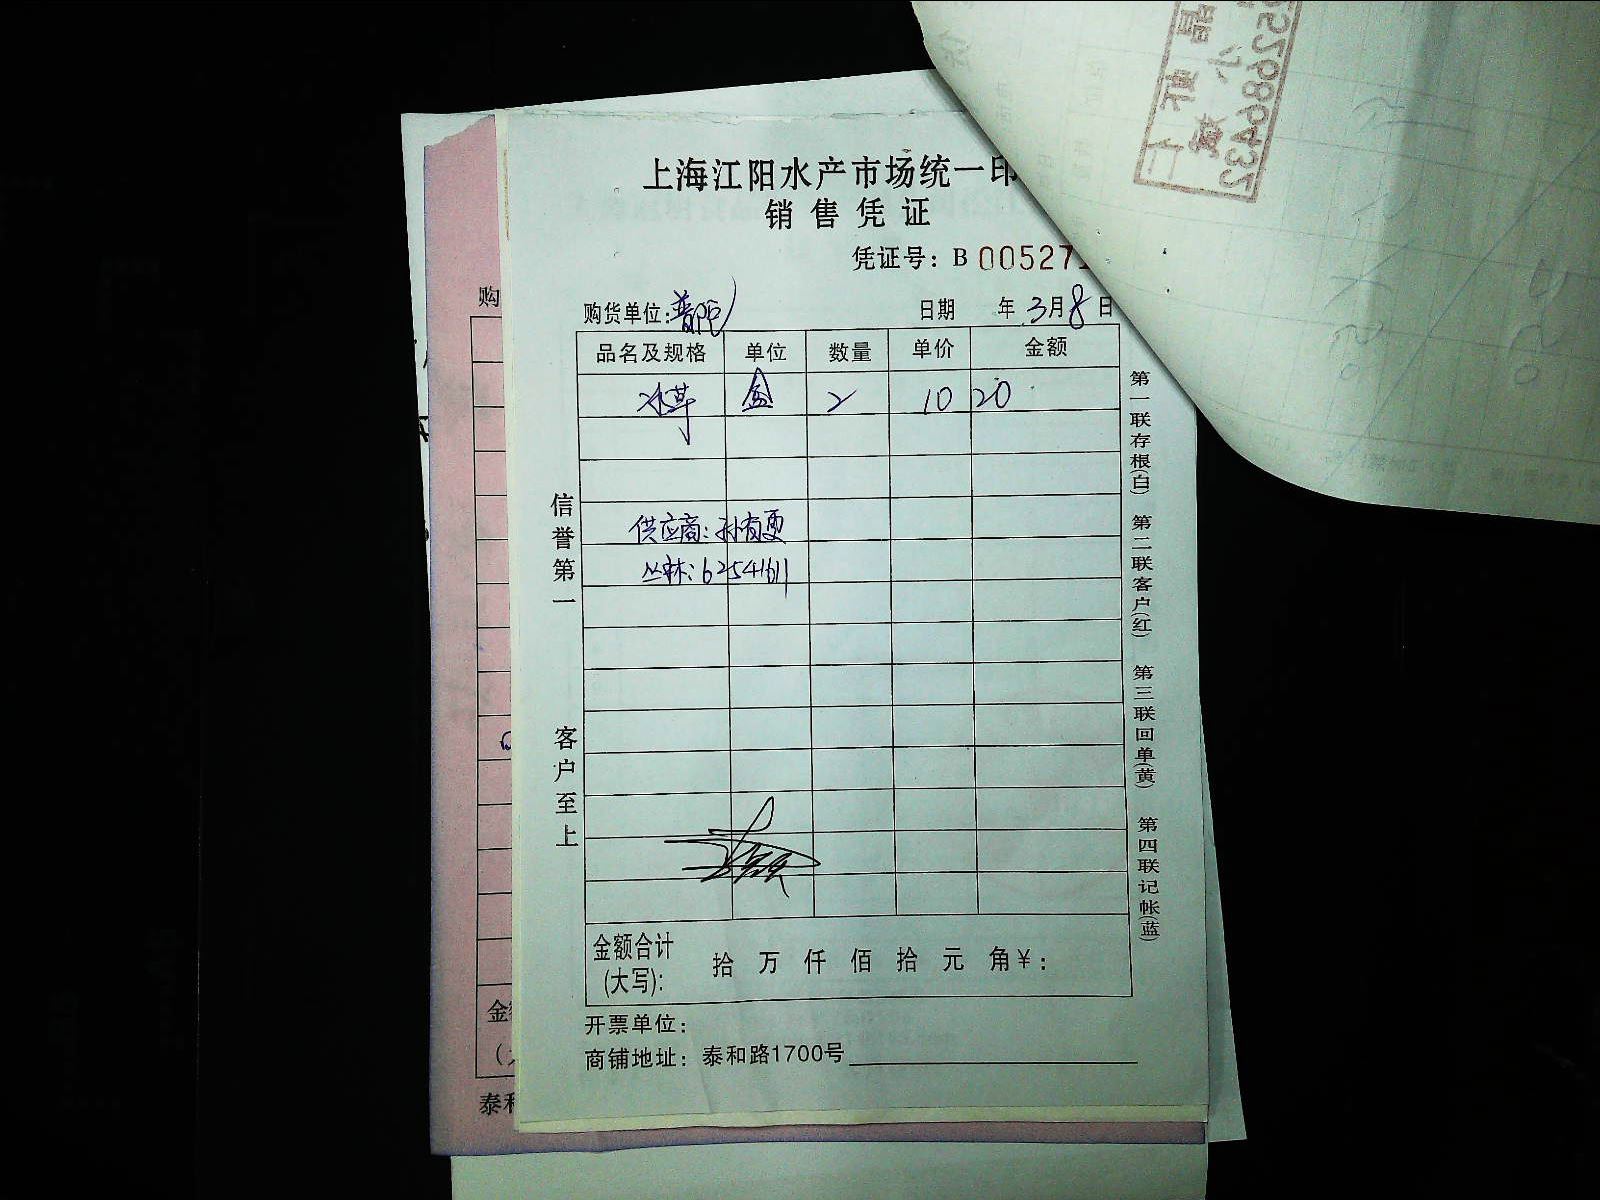 上海江阳水产市场统一印
销售凭证
凭证号: B 00527
购货单位: 普陀
日期 年 3月8日
品名及规格 单位 数量 单价 金额
冰草 盒 2 10 20
供应商: 孙有
62541611
信誉第一
客户至上
第一联存根(白) 第二联客户(红) 第三联回单(黄) 第四联记帐(蓝)
金额合计 拾 万 仟 佰 拾 元 角 ¥:
(大写):
开票单位:
商铺地址: 泰和路1700号
购
金
泰和